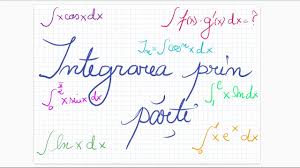 ∫x cosx dx
∫f(x)·g'(x) dx = ?
Iₙ = ∫cosⁿx dx
Integrarea prin
părți
∫₀^(π/2) x sinx dx
∫₁^e x lnx dx
∫ln x dx
∫₀¹ x eˣ dx